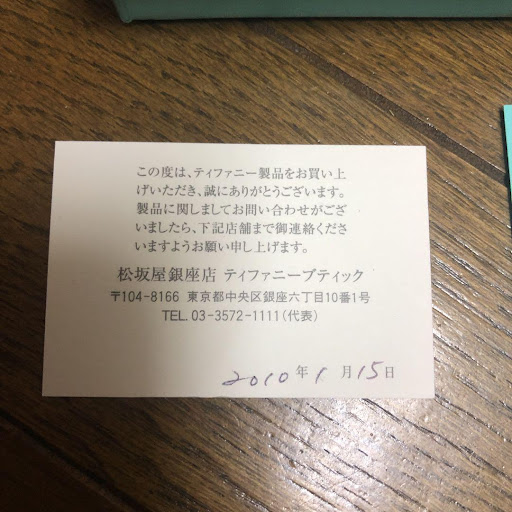 この度は、ティファニー製品をお買い上
げいただき、誠にありがとうございます。
製品に関しましてお問い合わせがござ
いましたら、下記店舗まで御連絡くださ
いますようお願い申し上げます。
松坂屋銀座店 ティファニーブティック
〒104-8166 東京都中央区銀座六丁目10番1号
TEL. 03-3572-1111(代表)
2010年1月15日